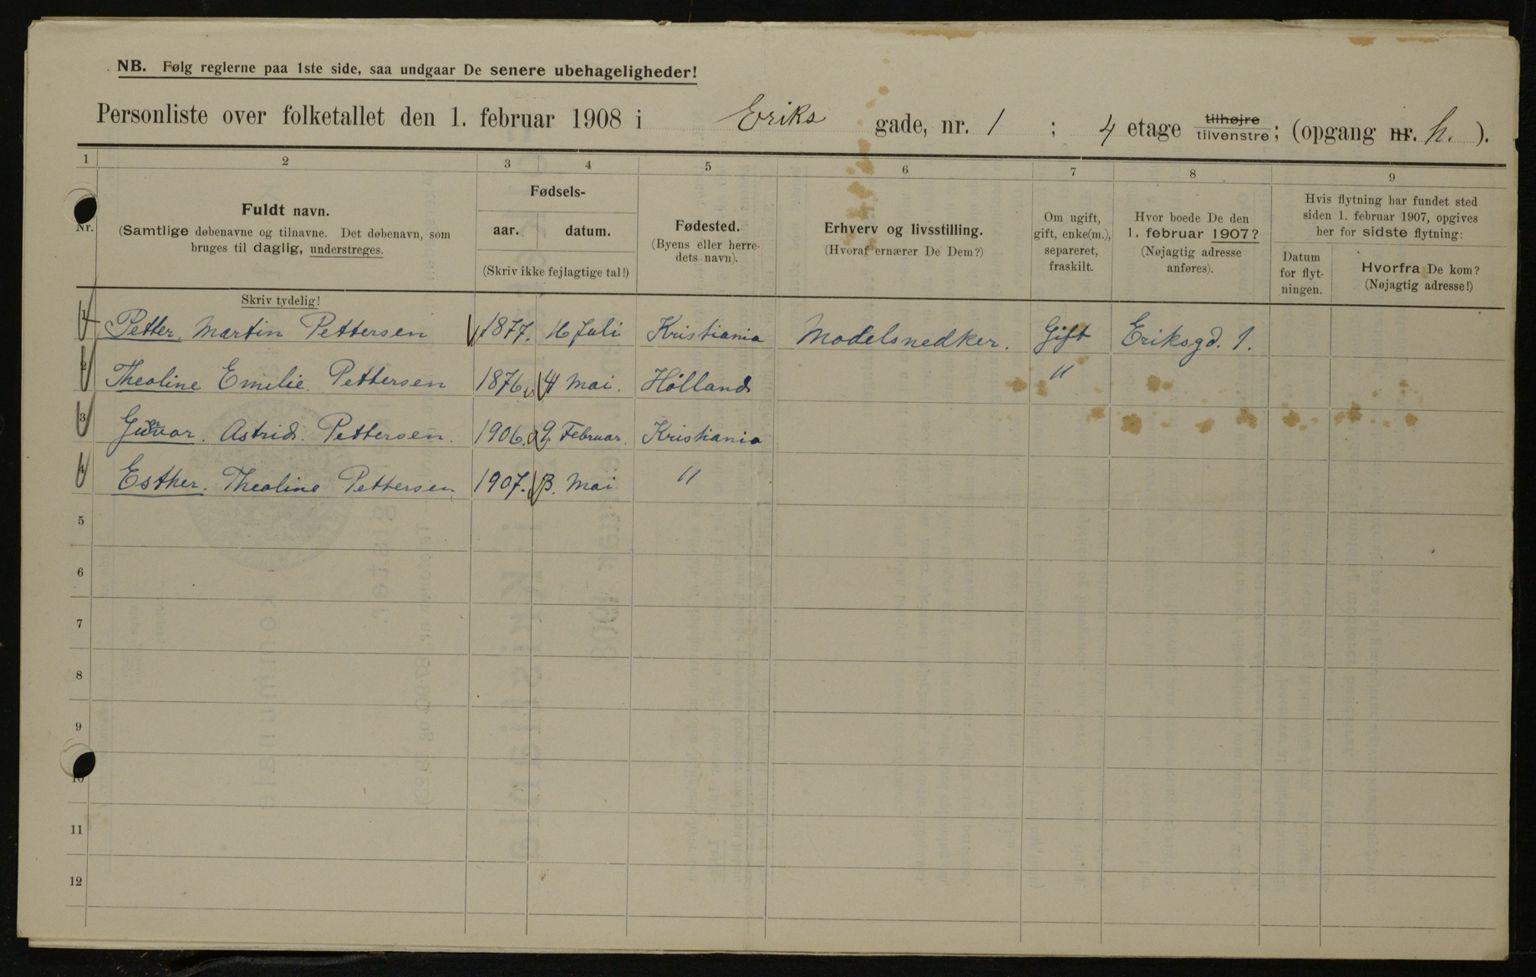 NB. Følg reglerne paa 1ste side, saa undgaar De senere ubehageligheder!
Personliste over folketallet den 1. februar 1908 i Eriks gade, nr. 1 ; 4 etage tilhøjre tilvenstre; (opgang nr. h. ).
1 2 3 4 5 6 7 8 9
Nr.
Fuldt navn.
(Samtlige døbenavne og tilnavne. Det døbenavn, som
bruges til daglig, understreges.
Skriv tydelig!
Fødsels-
aar. datum.
(Skriv ikke fejlagtige tal!)
Fødested.
(Byens eller herre-
dets navn).
Erhverv og livsstilling.
(Hvoraf ernærer De Dem?)
Om ugift,
gift, enke(m.),
separeret,
fraskilt.
Hvor boede De den
1. februar 1907?
(Nøjagtig adresse
anføres).
Hvis flytning har fundet sted
siden 1. februar 1907, opgives
her for sidste flytning:
Datum
for flyt-
ningen.
Hvorfra De kom?
(Nøjagtig adresse!)
1 Petter Martin Pettersen 1877. 16 Juli Kristiania Modelsnedker. Gift Eriksgd. 1.
2 Theoline Emilie Pettersen 1876 4 Mai. Hölland "
3 Astrid. Pettersen. 1906. 9 Februar. Kristiania
4 Esther. Theoline Pettersen 1907. 3. Mai "
5
6
7
8
9
10
11
12